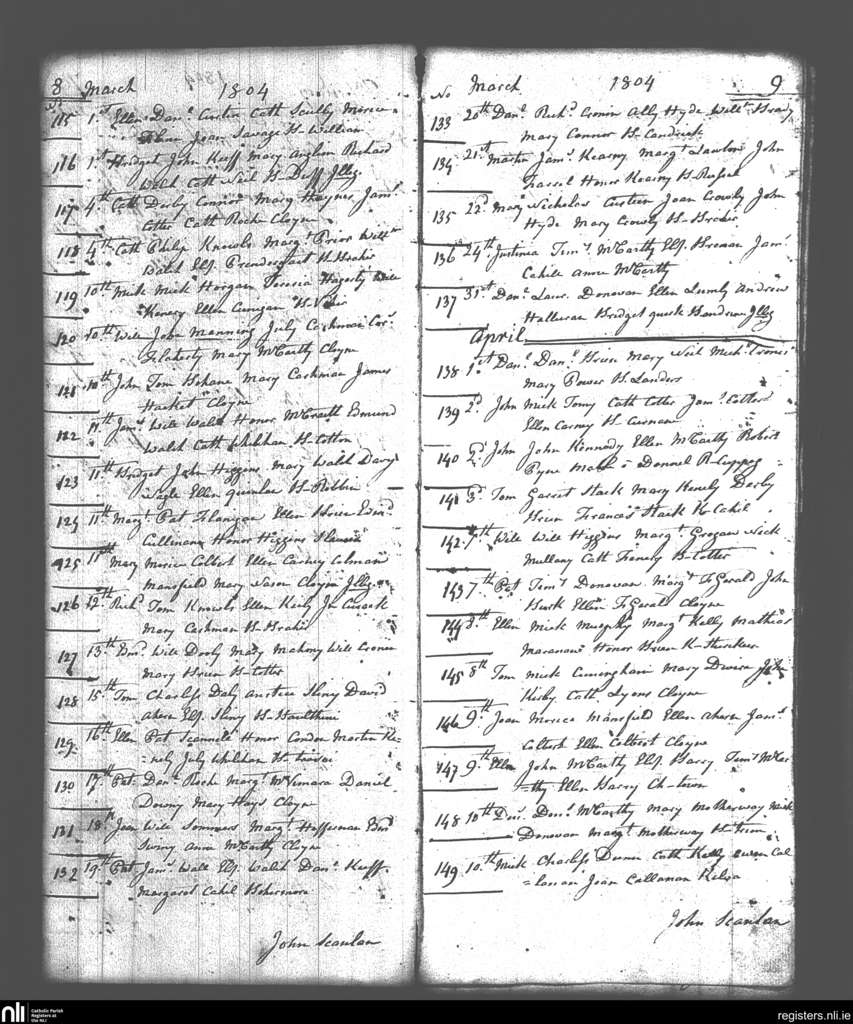 8 March 1804
No
115 1st Ellen Danl Curtin Cath Scully Morice
Joan Savage H-William
116 1st Bridget John Keeff Mary Anglim Richard
Walsh Cath Neil H-Duff Jlleg
117 4th Cath Derby Connor Marg Haynes Jams
Cotter Cath Roche Cloyne
118 4th Cath Philip Knowls Margt Prior Willm
Walsh Elis Prendergast H-
119 10th Mick Mick Horgan Teresia Hagerty Will
Ellen
120 10th Will John Manning July Cashman Cor:
Flaherty Mary McCarthy Cloyne
121 10th John Tom Bohane Mary Cashman James
Hacket Cloyne
122 11th Jams Will Walsh Honor McCraith Edmund
Walsh Cath Whelehan H-Cotton
123 11th Bridget John Higgins Mary Walsh Davy
Nagle Ellen Quinlan H-
124 11th Margt Pat Flanagan Ellen Brien Edmd
Cullinane Honor Higgins
125 11th Mary Morice Colbert Ellen Carney Colman
Mansfield Mary Nason Cloyne Jlleg
126 12th Richd Tom Knowls Ellen Kiely Jn Cusack
Mary Cashman H-
127 13th Edmd Will Dooly Mary Mahony Will Cronen
Mary Brien H-Cotter
128 15th Tom Charles Daly Anstice Sliny David
Ahern Elis Sliny H-
129 16th Ellen Pat Scannell Honor Condon Martin Ke=
=nely July Whelehan H-
130 17th Pat Danl Roche Margt McNemara Daniel
Downy Mary Hays Cloyne
131 18th Joan Will Sommers Margt Heffernan Edmd
Swiny Anne McCarthy Cloyne
132 19th Pat Jams Wall Elis Walsh Danl Keeff
Margaret Cahil Bohermore
John Scanlan
No March 1804 9
133 20th Danl Richd Cronin Ally Hyde Willm
Mary Connor H-Condrick
134 21st Martin Jams Kearny Margt Lawlor John
Honor Kearny H-Russel
135 22d Mary Nicholas Curteen Joan Crowly John
Hyde Mary Crowly H-
136 24th Justinea Timy McCarthy Elis Jams
Cahill Anne McCarthy
137 31st Danl Laur. Donovan Ellen Lumly Andrew
Halluran Bridget Quirk Jlleg
April
138 1st Danl Danl Brien Mary Neil Michl
Mary Power H-Landers
139 2d John Mick Tomy Cath Cotter Jams Cotter
Ellen Carney H-
140 2d John John Kennedy Ellen McCarthy Robert
Pyne Donnel R-
141 3d Tom Garret Stack Mary Kenely Derby
Brien Frances Stack K-Cahil
142 7th Will Will Higgins Margt Grogan Nick
Mullany Cath H-Cotter
143 7th Pat Timy Donovan Margt FzGerald John
Burk Ellen FzGerald Cloyne
144 8th Ellen Mick Murphy Margt Kelly Mathias
Honor Brien K-
145 8th Tom Mick Cuningham Mary Dwier John
Kirby Cath Lyons Cloyne
146 9th Joan Morice Mansfield Ellen Ahern Jams
Colbert Ellen Colbert Cloyne
147 9th Ellen John McCarthy Elis Barry Timy McCar
=thy Ellen Barry Ch-town
148 10th Denis Denis McCarthy Mary Motherway Mick
Donovan Margt Motherway H-
149 10th Mick Charles Dunn Cath Kelly Owen Cal
=lanan Joan Callanan Kilva
John Scanlan
nli Catholic Parish
Registers at
the NLI
registers.nli.ie